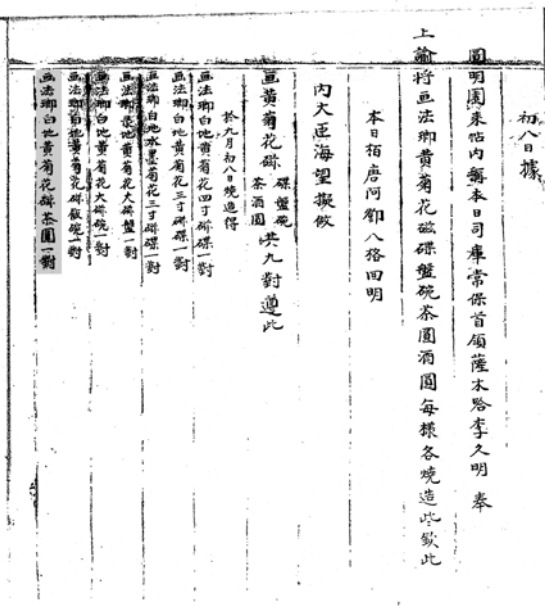 初八日據
圓明園來帖內稱本日司庫常保首領薩木哈李久明奉
上諭將畫法瑯黃菊花磁碟盤碗茶圓酒圓每樣各燒造些欽此
本日栢唐阿鄧八格回明
內大臣海望擬做
畫黃菊花磁碟盤碗茶酒圓共九對遵此
於九月初八日燒造得
畫法瑯白地黃菊花四寸磁碟一對
畫法瑯白地黃菊花三寸磁碟一對
畫法瑯白地水墨菊花三寸磁碟一對
畫法瑯地黃菊花大磁盤一對
畫法瑯白地黃菊花大磁碗一對
畫法瑯白地黃菊花磁飯碗一對
畫法瑯白地黃菊花磁茶圓一對